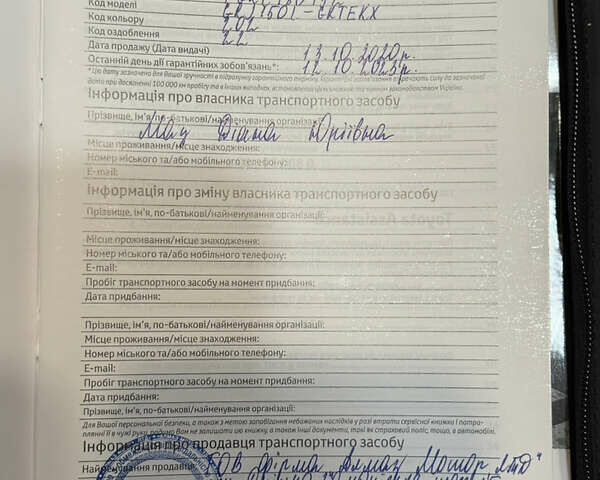 Код моделі
Код кольору 202
Код оздоблення 22
Дата продажу (Дата видачі) 13.10.2020р.
Останній день дії гарантійних зобов'язань*: 12.10.2023р.
*Цю дату зазначено для Вашої зручності в підрахунку гарантійного терміну. Гарантійні зобов'язання втрачають силу до зазначеної
дати при досягненні 100 000 км пробігу та в інших випадках, встановлених цією книжкою та чинним законодавством України.
Інформація про власника транспортного засобу
Прізвище, ім'я, по-батькові/найменування організації:
Діана Юріївна
Місце проживання/місце знаходження:
Номер міського та/або мобільного телефону:
E-mail:
Інформація про зміну власника транспортного засобу
Прізвище, ім'я, по-батькові/найменування організації:
Місце проживання/місце знаходження:
Номер міського та/або мобільного телефону:
E-mail:
Пробіг транспортного засобу на момент придбання:
Дата придбання:
Прізвище, ім'я, по-батькові/найменування організації:
Місце проживання/місце знаходження:
Номер міського та/або мобільного телефону:
E-mail:
Пробіг транспортного засобу на момент придбання:
Дата придбання:
Прізвище, ім'я, по-батькові/найменування організації:
Для Вашої персональної безпеки, а також з метою запобігання небажаних наслідків у разі втрати сервісної книжки і потра-
пляння її в чужі руки, радимо Вам не залишати цю книжку, а також інші документи, такі як страховий поліс, тощо, в автомобілі.
Інформація про продавця транспортного засобу
Найменування продавця: ТОВ фірма Алмаз Мотор ЛТД"